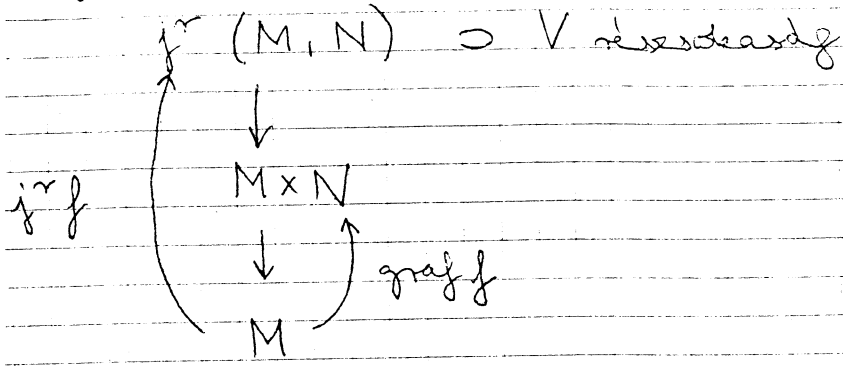 j^r (M, N) ⊃ V részsokaság
↓
j^r f M × N
↓ graf f
M